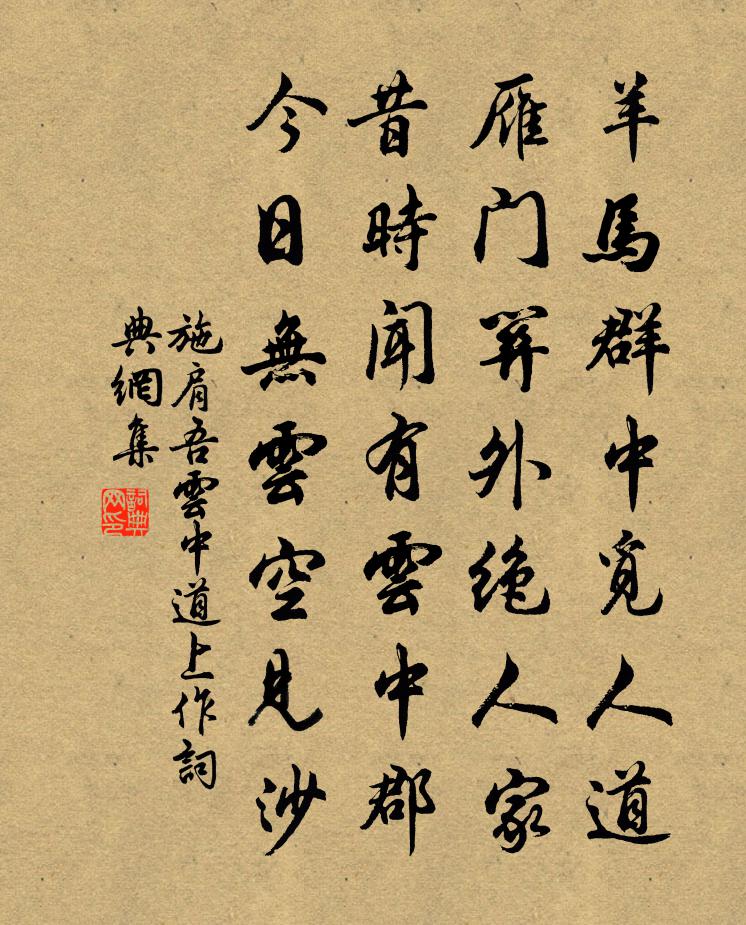 羊馬群中覓人道
雁門關外絕人家
昔時聞有雲中郡
今日無雲空見沙
施肩吾雲中道上作詞
典網集
詞典
网印